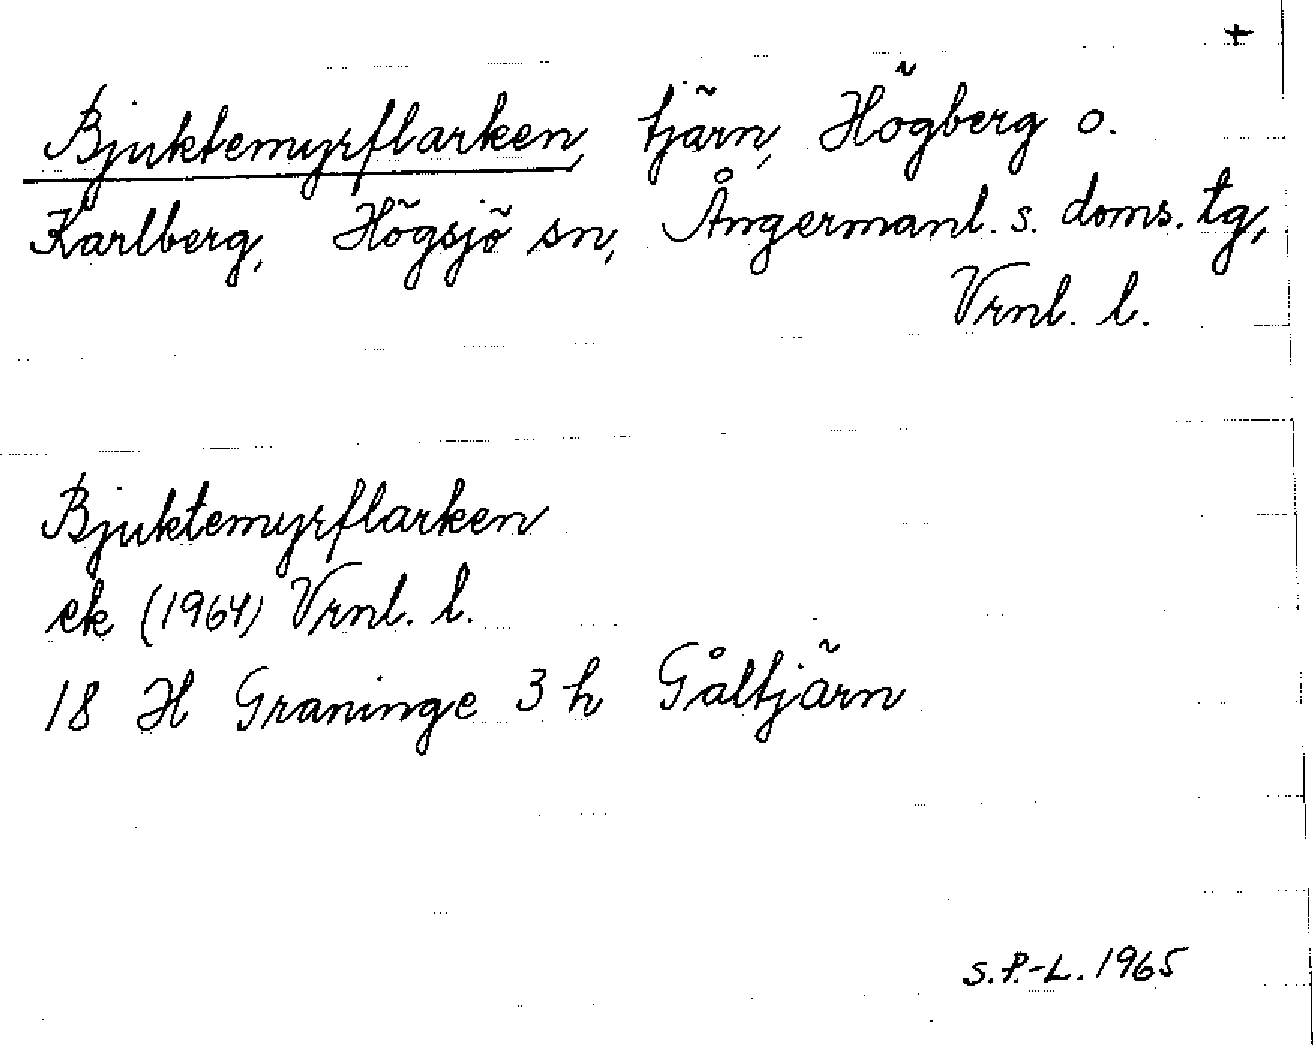 +
Bjuktemyrflarken, tjärn, Högberg o.
Karlberg, Högsjö sn, Ångermanl. s. doms. tg,
Vrnl. l.
Bjuktemyrflarken
ek (1964) Vrnl. l.
18 H Graninge 3 h Gåltjärn
S.P.-L. 1965